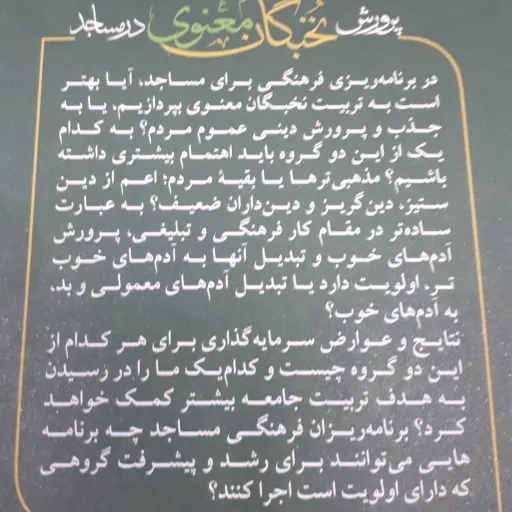 پرورش نخبگان معنوی در مساجد
در برنامه‌ریزی فرهنگی برای مساجد، آیا بهتر
است به تربیت نخبگان معنوی بپردازیم، یا به
جذب و پرورش دینی عموم مردم؟ به کدام
یک از این دو گروه باید اهتمام بیشتری داشته
باشیم؟ مذهبی‌ترها یا بقیهٔ مردم؛ اعم از دین
ستیز، دین‌گریز و دین‌داران ضعیف؟ به عبارت
ساده‌تر در مقام کار فرهنگی و تبلیغی، پرورش
آدم‌های خوب و تبدیل آنها به آدم‌های خوب
تر، اولویت دارد یا تبدیل آدم‌های معمولی و بد،
به آدم‌های خوب؟
نتایج و عوارض سرمایه‌گذاری برای هر کدام از
این دو گروه چیست و کدام‌یک ما را در رسیدن
به هدف تربیت جامعه بیشتر کمک خواهد
کرد؟ برنامه‌ریزان فرهنگی مساجد چه برنامه
هایی می‌توانند برای رشد و پیشرفت گروهی
که دارای اولویت است اجرا کنند؟